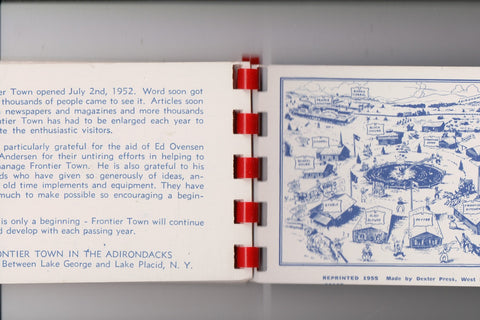 er Town opened July 2nd, 1952. Word soon got
thousands of people came to see it. Articles soon
newspapers and magazines and more thousands
ontier Town has had to be enlarged each year to
te the enthusiastic visitors.
particularly grateful for the aid of Ed Ovensen
Andersen for their untiring efforts in helping to
anage Frontier Town. He is also grateful to his
ds who have given so generously of ideas, an-
old time implements and equipment. They have
much to make possible so encouraging a begin-
is only a beginning - Frontier Town will continue
d develop with each passing year.
ONTIER TOWN IN THE ADIRONDACKS
Between Lake George and Lake Placid, N. Y.
REPRINTED 1955 Made by Dexter Press, West